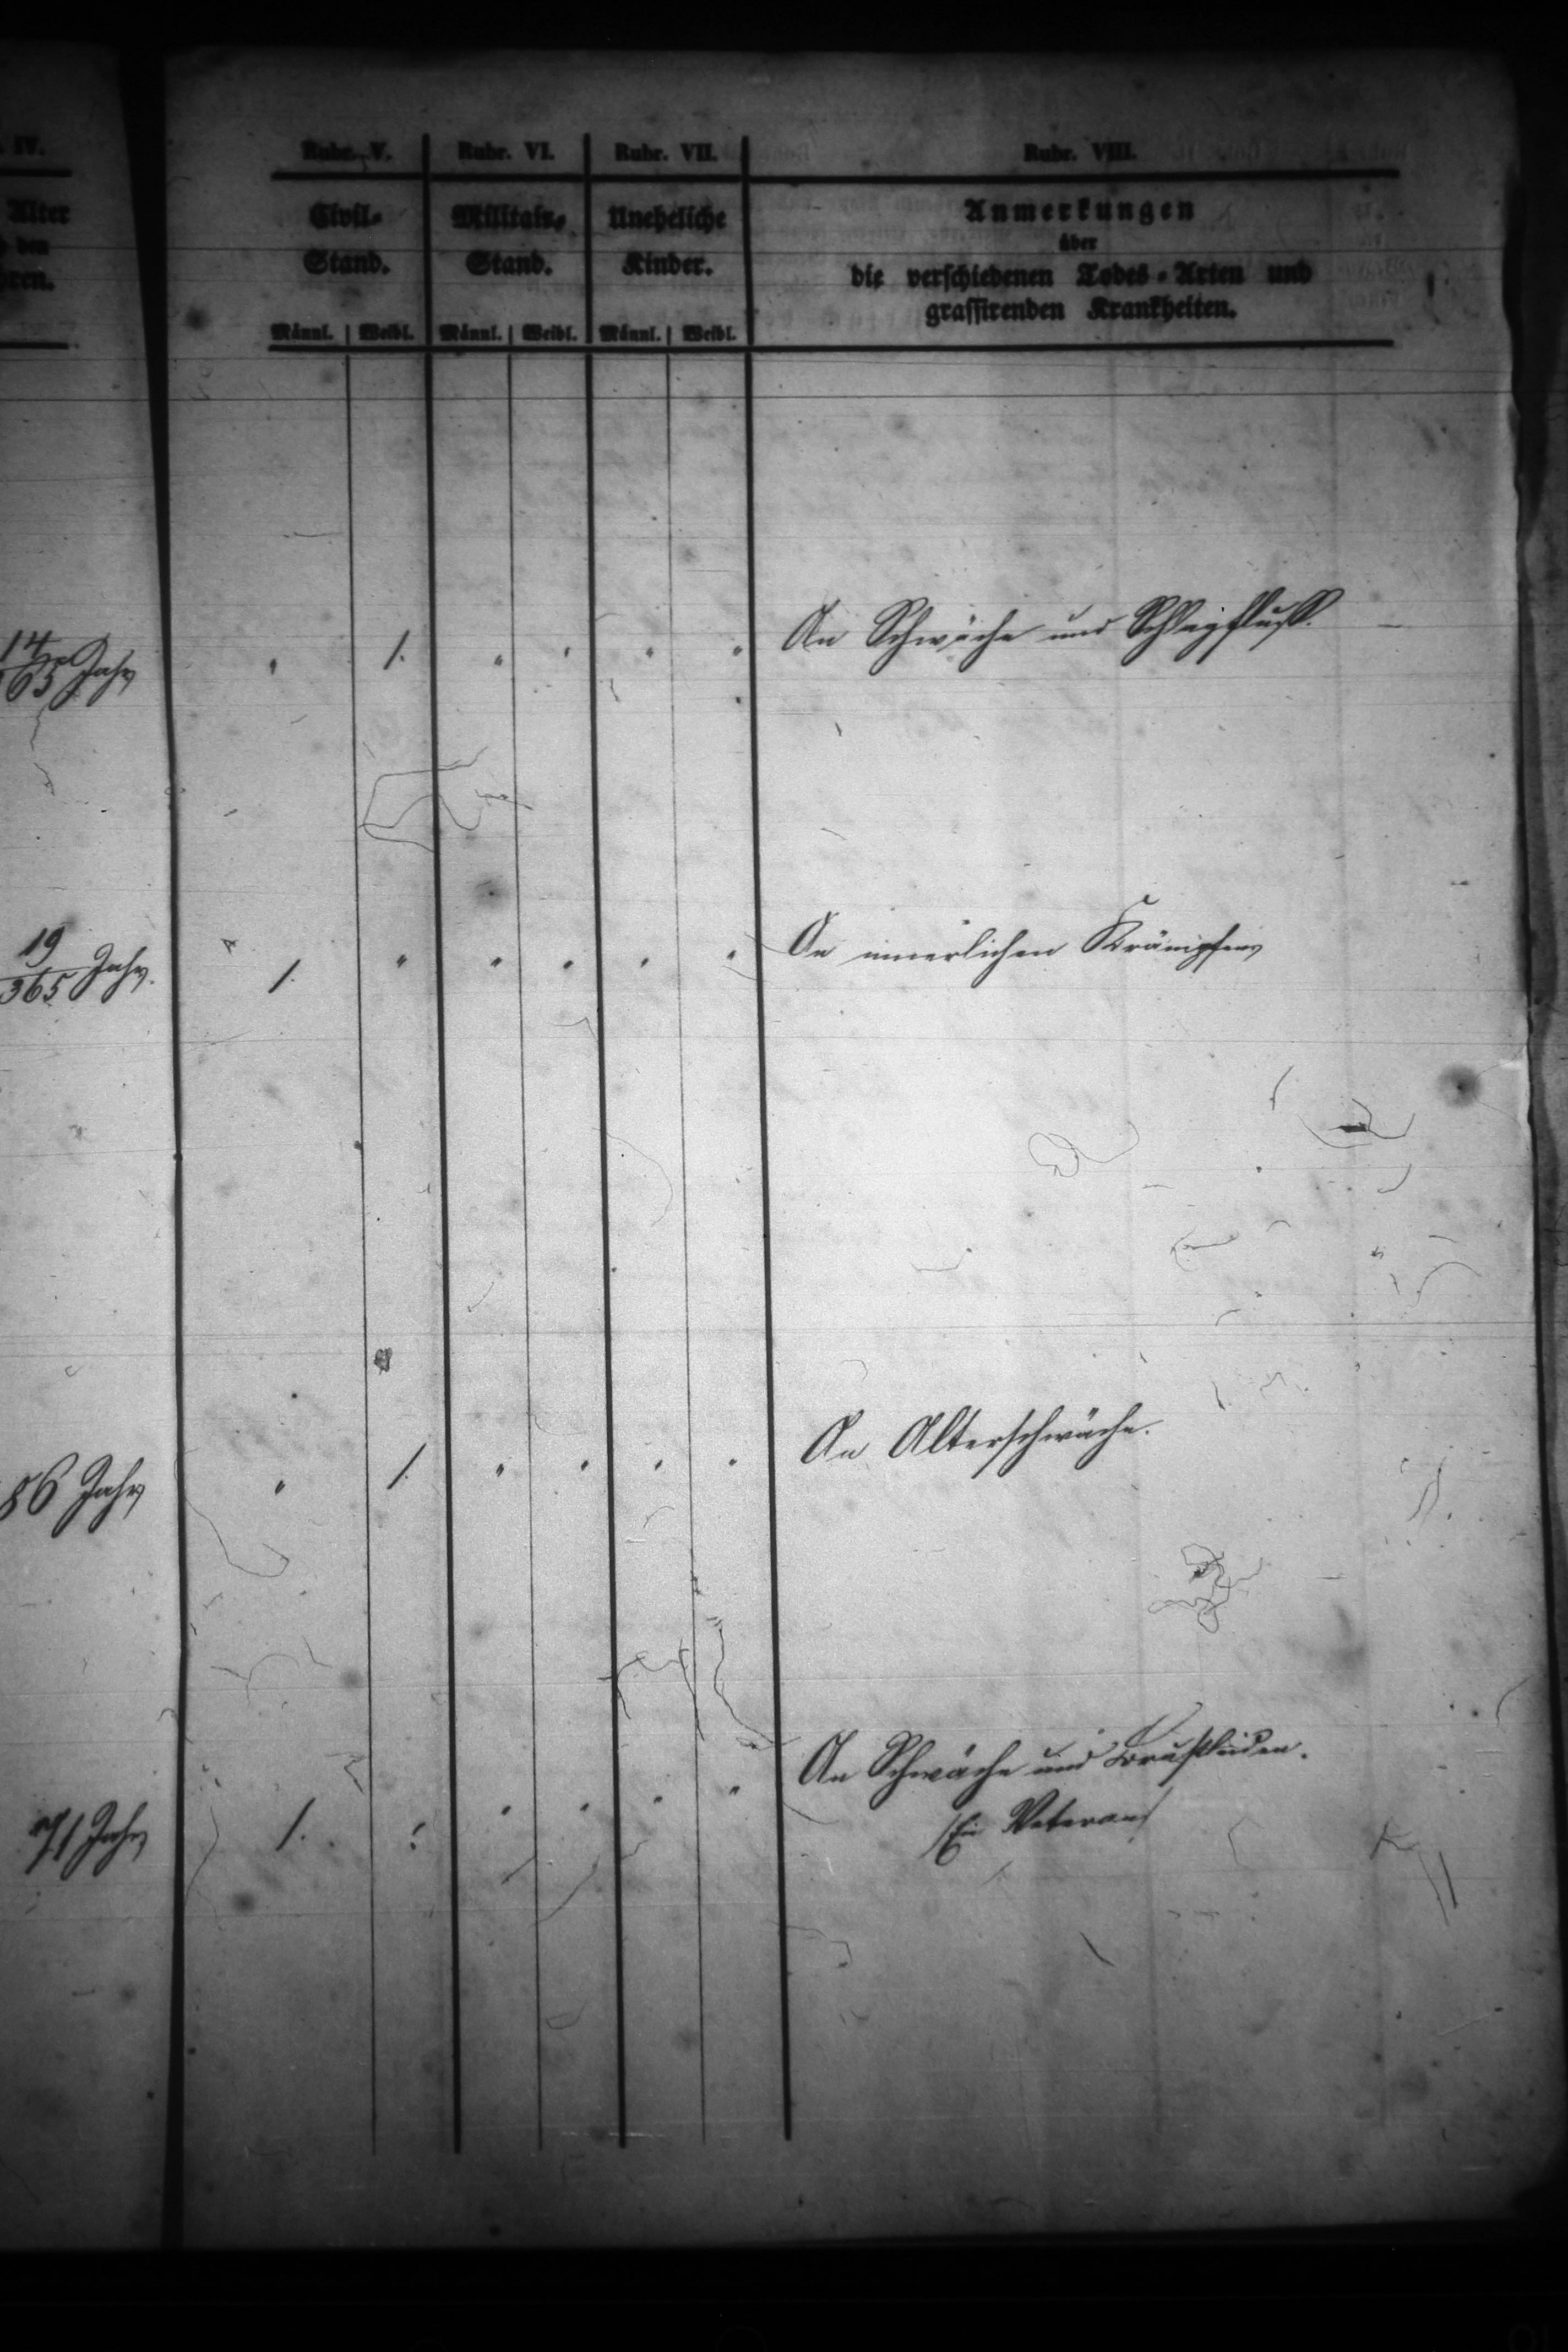 IV. Rubr. V. Rubr. VI. Rubr. VII. Rubr. VIII.
Alter Civil- Militair- Uneheliche Anmerkungen
den Stand. Stand. Kinder. über
ren. die verschiedenen Todes-Arten und
grassirenden Krankheiten.
Männl. Weibl. Männl. Weibl. Männl. Weibl.
14/365 Jahr " 1. " " " " An Schwäche und Schlagfluß.
19/365 Jahr. 1. " " " " " An innerlichen Krämpfen
86 Jahr " 1. " " " " An Alterschwäche.
71 Jahr 1. " " " " " An Schwäche und Brustleiden.
/Ein Veteran/